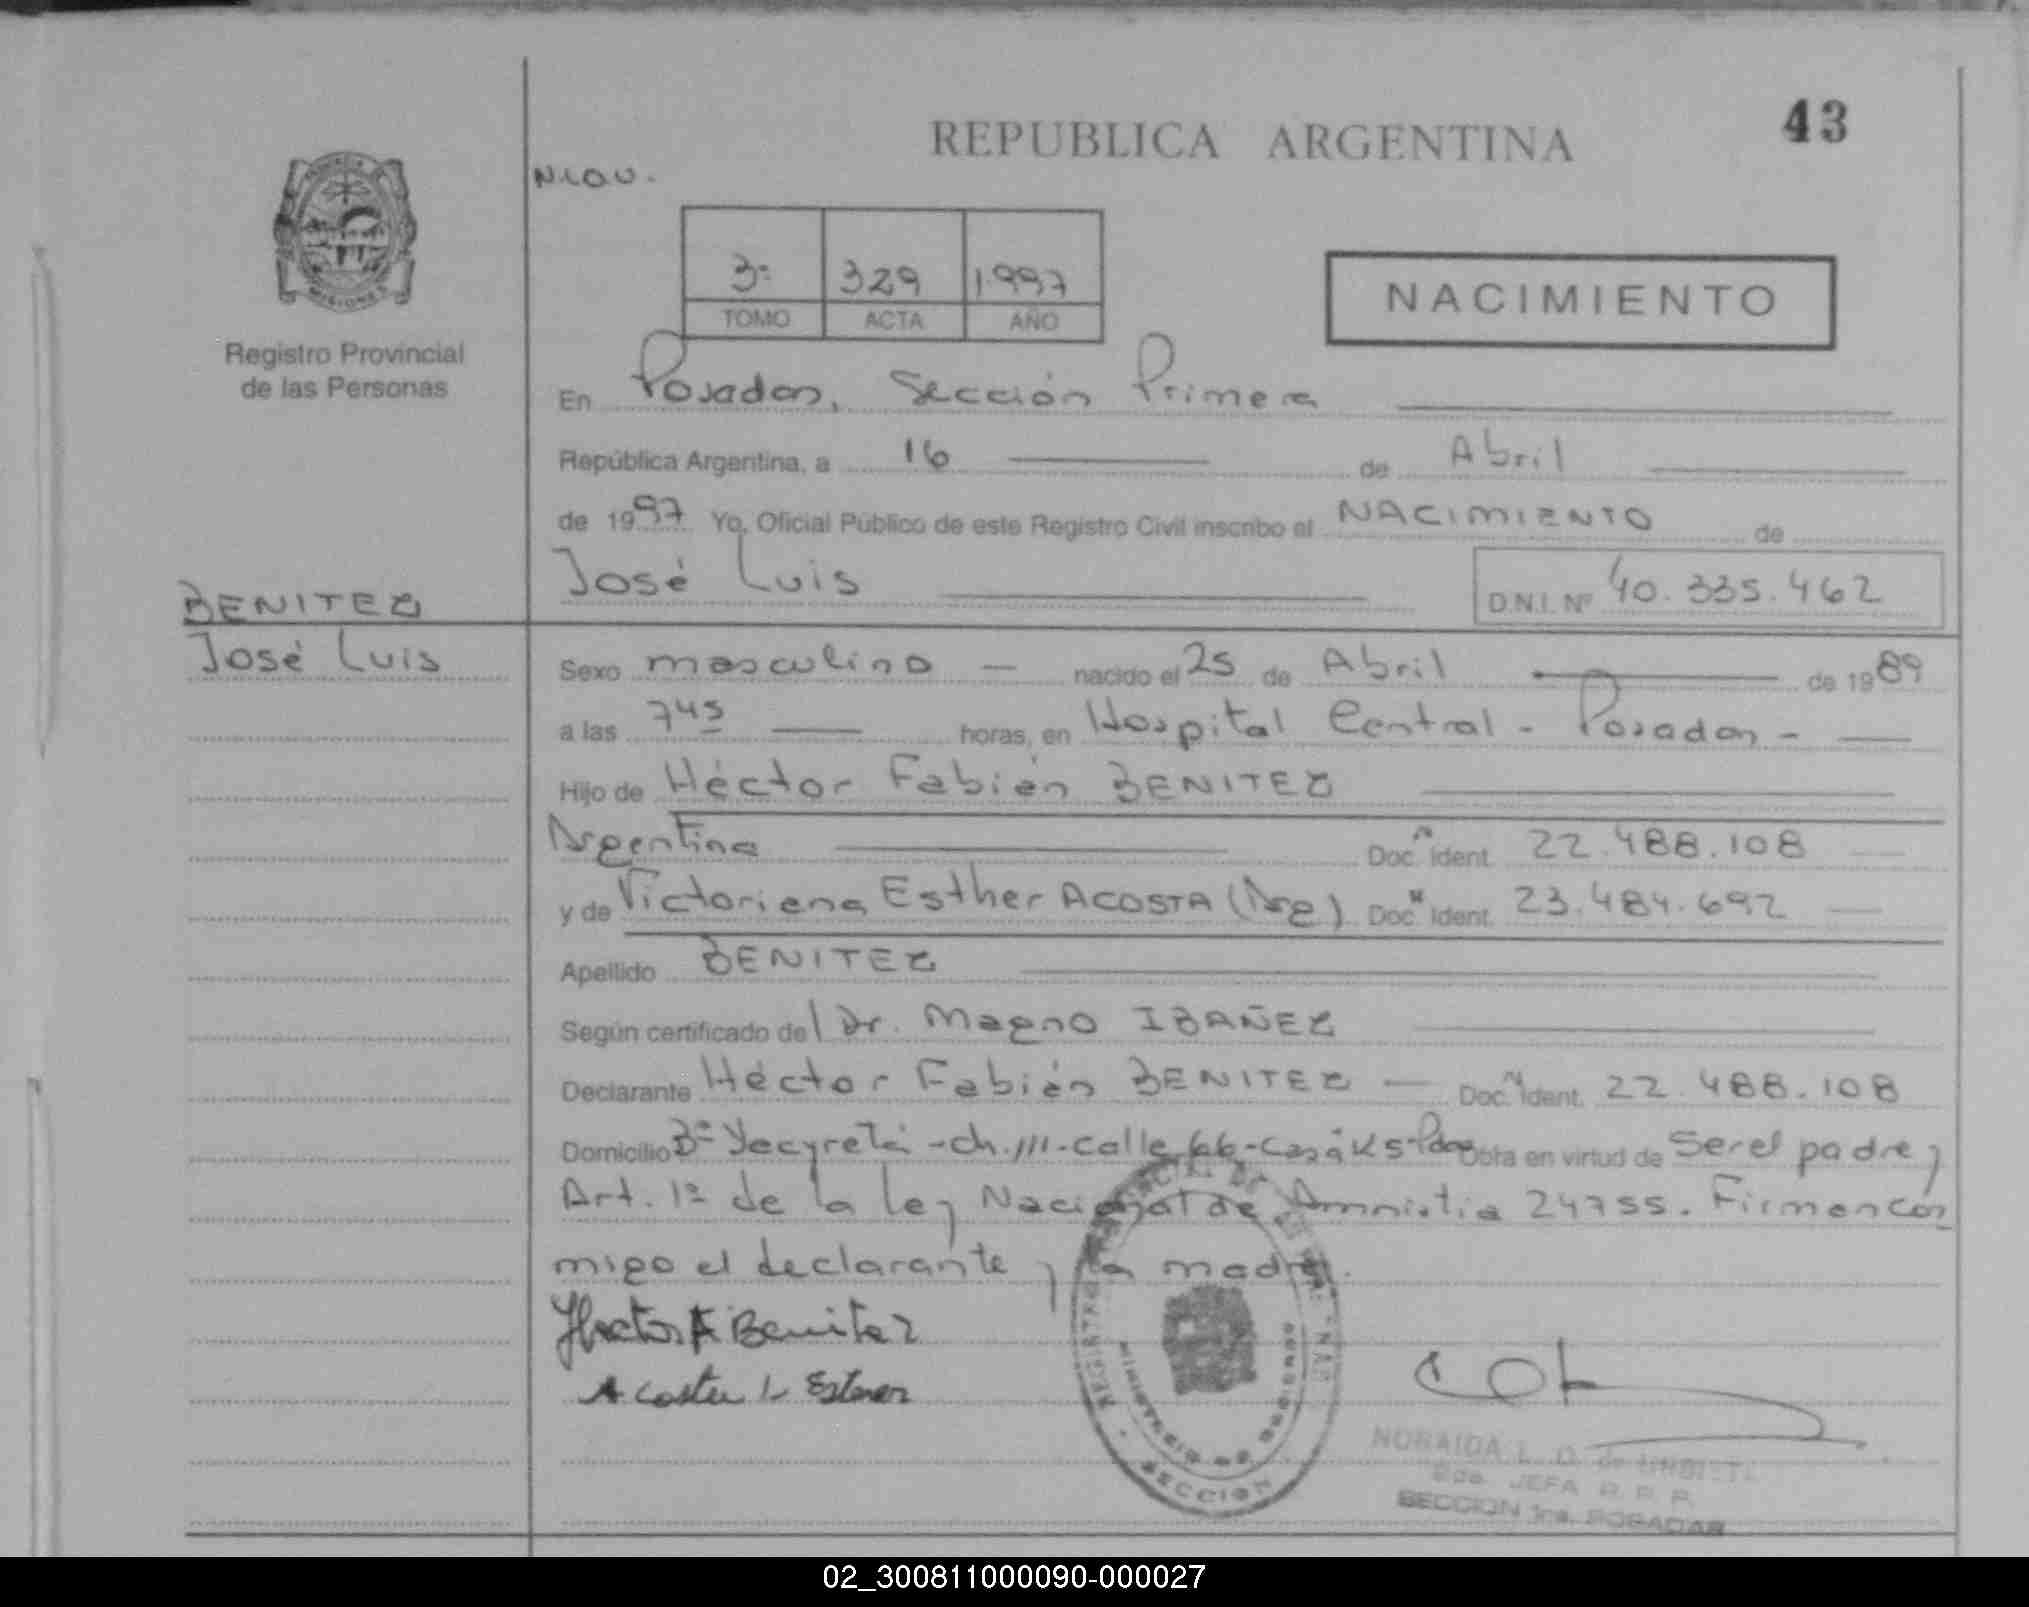 43
REPUBLICA ARGENTINA
PROVINCIA DE
MISIONES
Registro Provincial
de las Personas
3º 329 1997
TOMO ACTA AÑO
NACIMIENTO
En Posadas, Sección Primera
República Argentina, a 16 de Abril
de 1997 Yo, Oficial Público de este Registro Civil inscribo el NACIMIENTO de
José Luis D.N.I. Nº 40.335.462
BENITEZ
José Luis
Sexo masculino nacido el 25 de Abril de 1989
a las 745 horas, en Hospital Central - Posadas -
Hijo de Héctor Fabián BENITEZ
Argentina Doc. Ident. 22.488.108
y de Victoriana Esther ACOSTA (Arg) Doc. Ident. 23.484.692
Apellido BENITEZ
Según certificado del Dr. Magno IBAÑEZ
Declarante Héctor Fabián BENITEZ Doc. Ident. 22.488.108
Domicilio Bº Yacyretá - ch. 111 - calle 66 - casa K5 - Pdas Obra en virtud de Ser el padre y
Art. 1º de la ley Nacional de Amnistia 24755. Firman con
migo el declarante y la madre.
Hector F Benitez
Acosta Ester
SECCION
NORAIDA L. D. de
2da. JEFA R. P. P.
SECCION 1ra. POSADAS
02_300811000090-000027